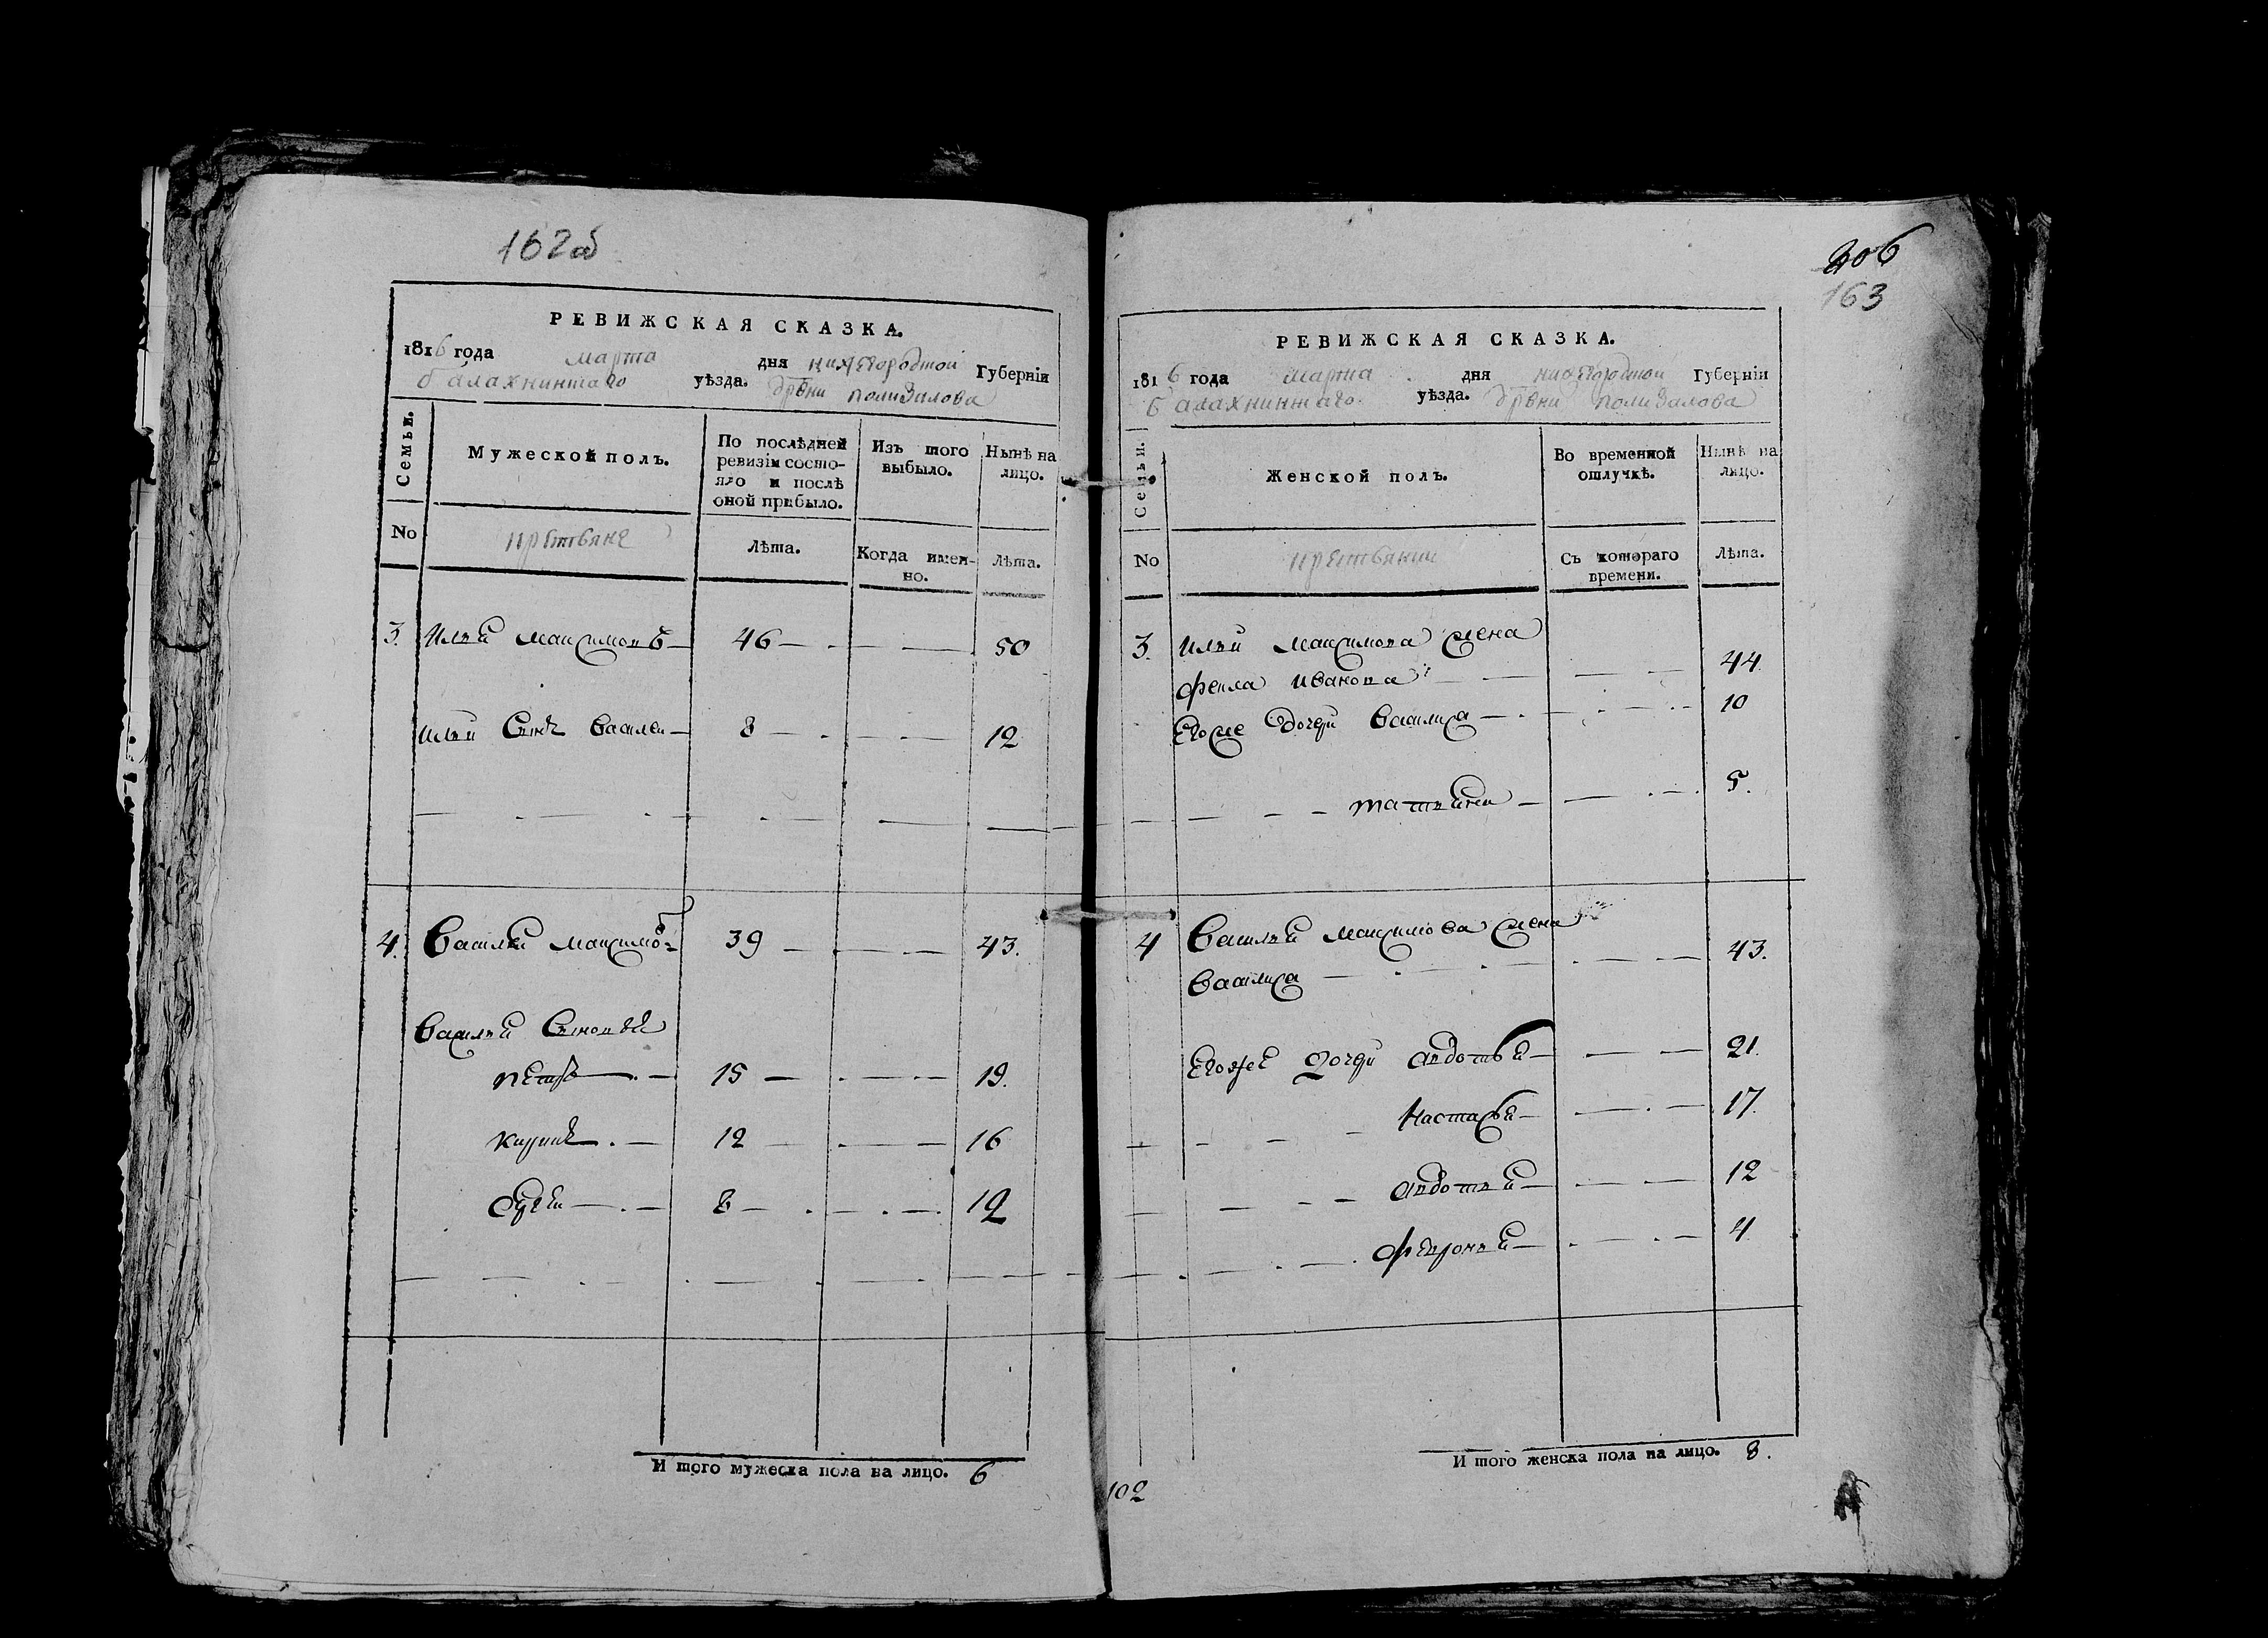 162об
РЕВИЖСКАЯ СКАЗКА.
1816 года марта дня нижегородской Губернїи
балахнинскаго уѣзда. дрвни поливалова
Семьи.
Мужеской полъ.
По послѣдней ревизїи состояло и послѣ оной прибыло.
Изъ того выбыло.
Нынѣ на лицо.
No
Лѣта.
Когда имен-но.
Лѣта.
3. Илья Максимовъ 46 50
Ильи Сынъ Василей 8 12
4. Василей Максимовъ 39 43.
Василья Сыновья
петръ 15 19.
12 16
8 12
И того мужеска пола на лицо. 6
206
163
РЕВИЖСКАЯ СКАЗКА.
1816 года марта дня нижегородской Губернїи
балахнинскаго уѣзда. дрвни поливалова
Семьи.
Женской полъ.
Во временной отлучкѣ.
Нынѣ на лицо.
No
Съ котораго времени.
Лѣта.
3. Ильи Максимова жена
фекла Иванова 44.
Егоже Дочери Василиса 10
татьяна 5.
4 Василья Максимова жена
Василиса 43.
Егоже Дочери авдотья 21.
Настасья 17.
авдотья 12
феврони́я 4
И того женска пола на лицо. 8.
102